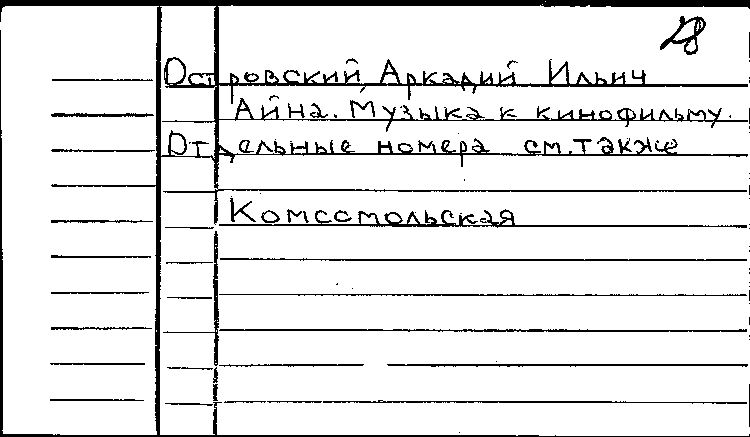 28
Островский Аркадий Ильич
Айна. Музыка к кинофильму.
Отдельные номера см. также
Комсомольская